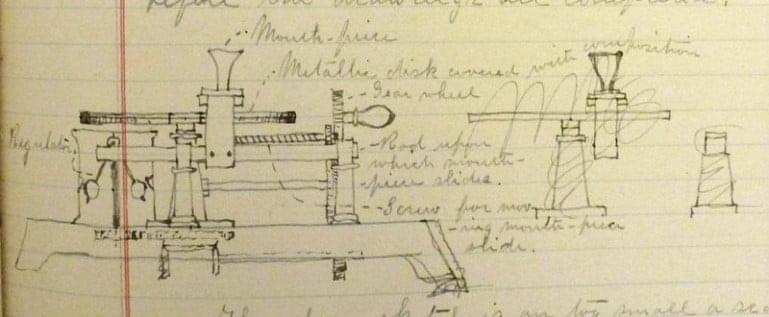 before the drawings are completed.
Mouth-piece
Metallic disk covered with composition
Gear wheel
Regulator
Rod upon
which mouth-
piece slides.
Screw for mov-
ing mouth-piece
slide.
is on too small a